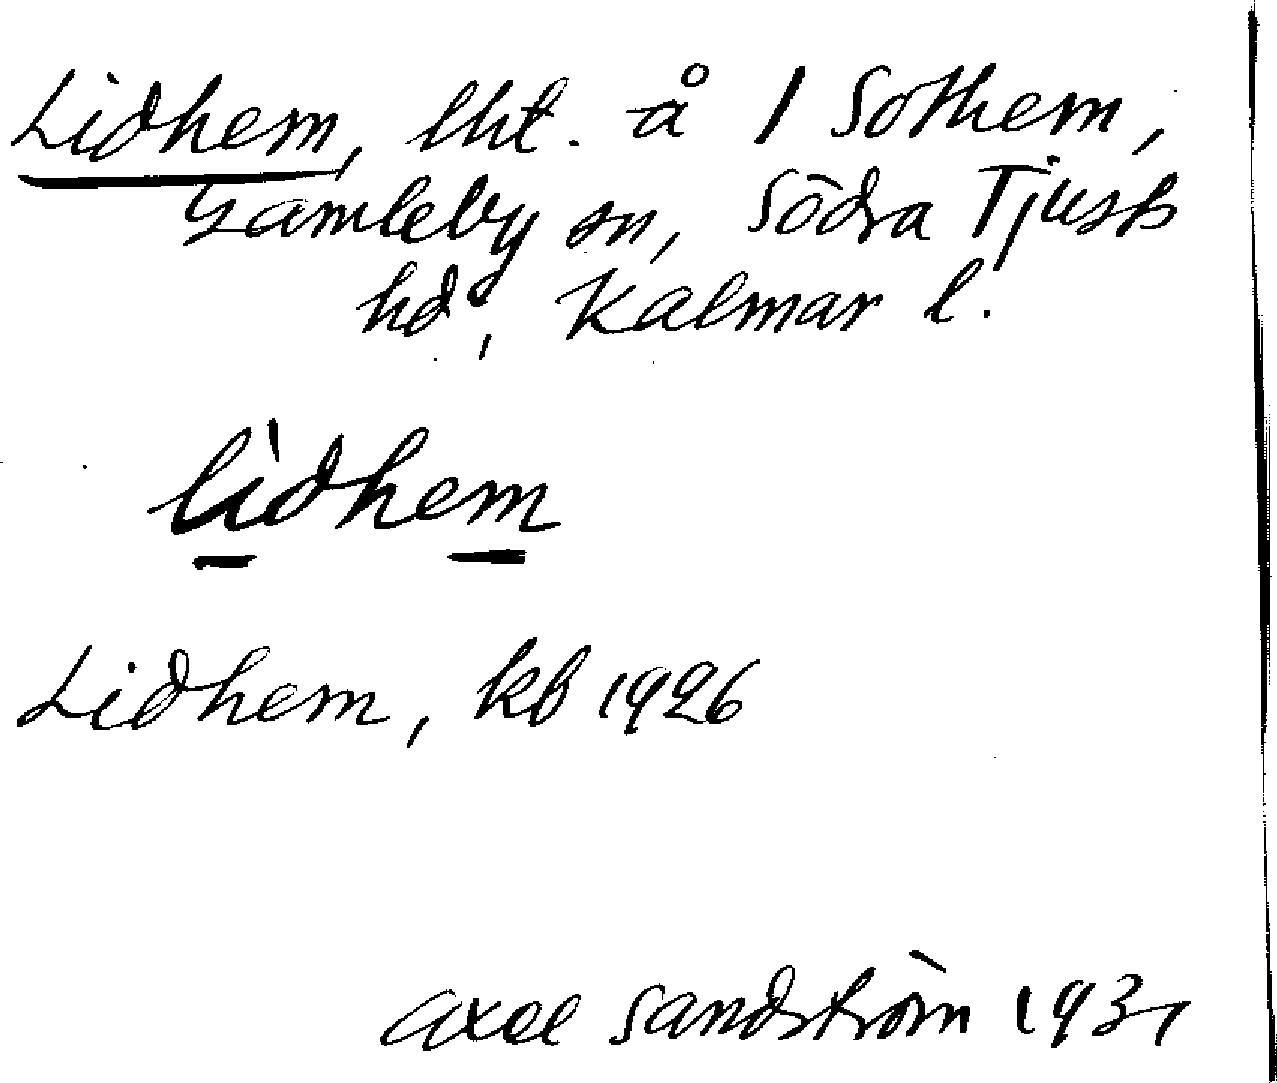 Lidhem, lht. å 1 Sothem,
Gamleby sn, Södra Tjusts
hd, Kalmar l.
lìdhem
Lidhem, kb 1926
Axel Sandström 1937